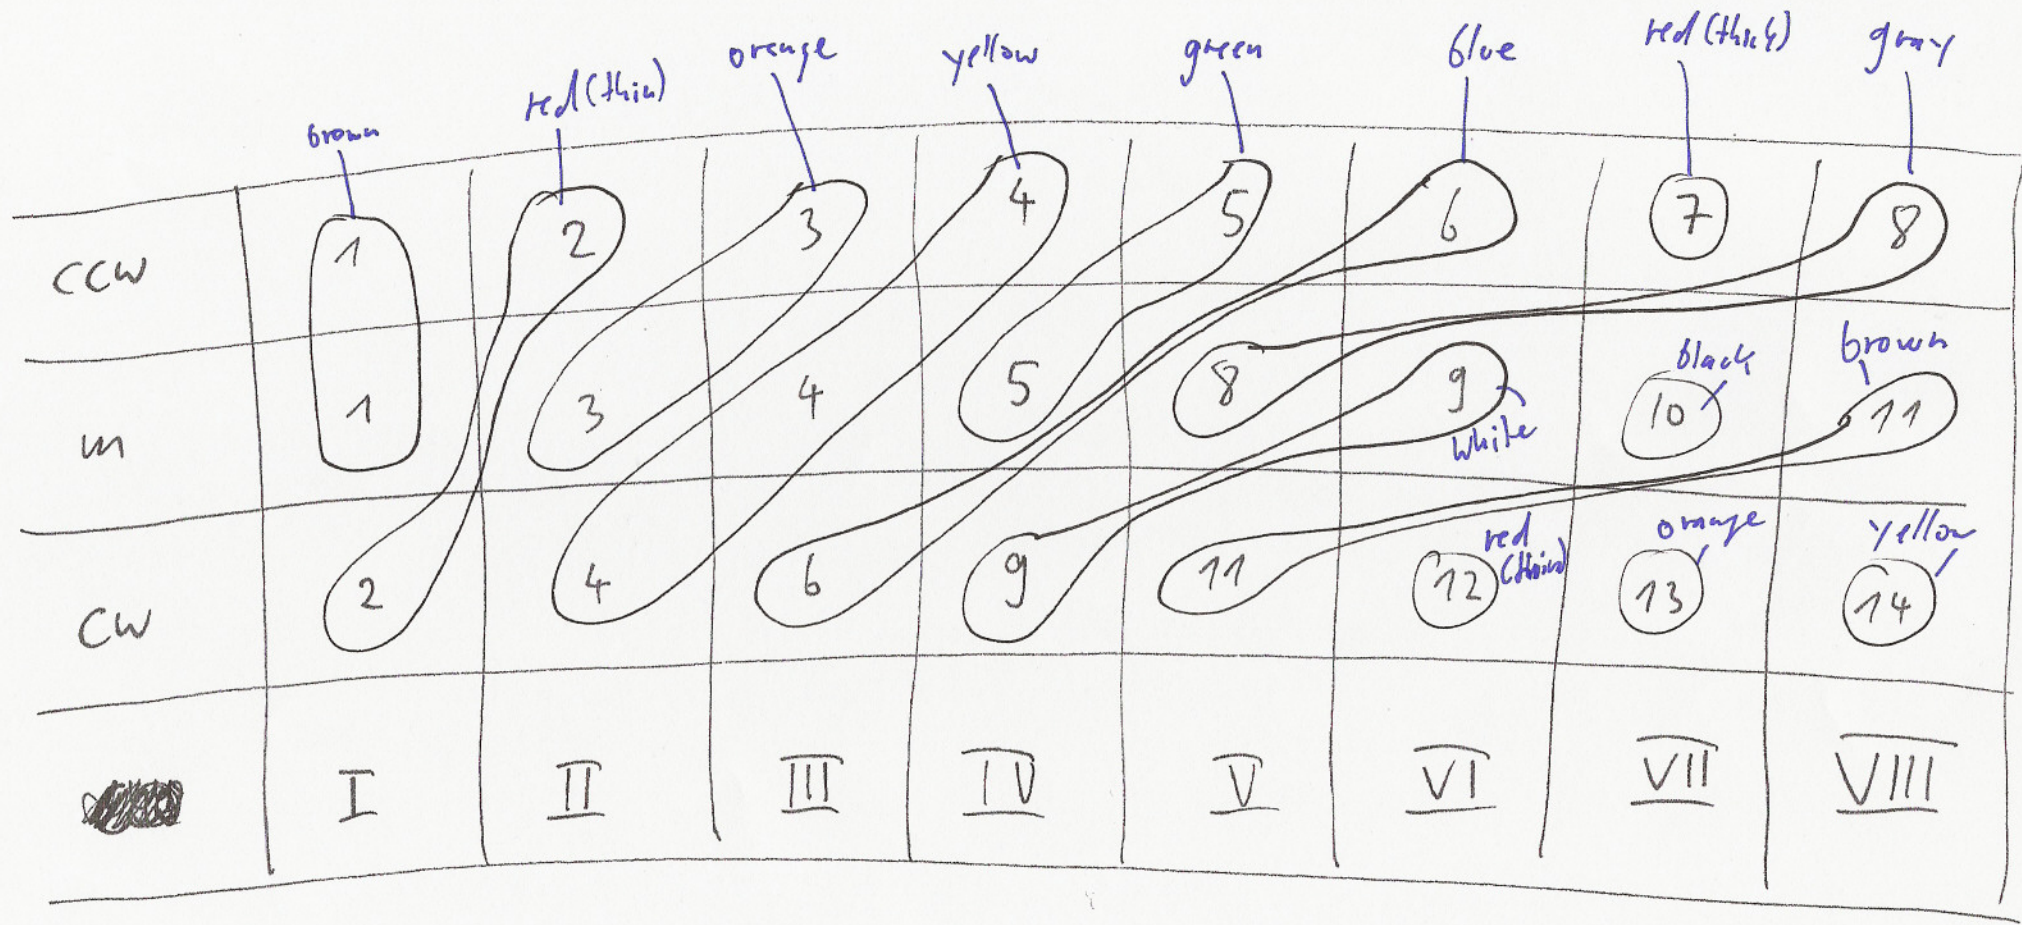 brown red(thin) orange yellow green blue red(thick) gray
CCW 1 2 3 4 5 6 7 8
m 1 3 4 5 8 9 10 11
white black brown
CW 2 4 6 9 11 12 13 14
red (thin) orange yellow
I II III IV V VI VII VIII